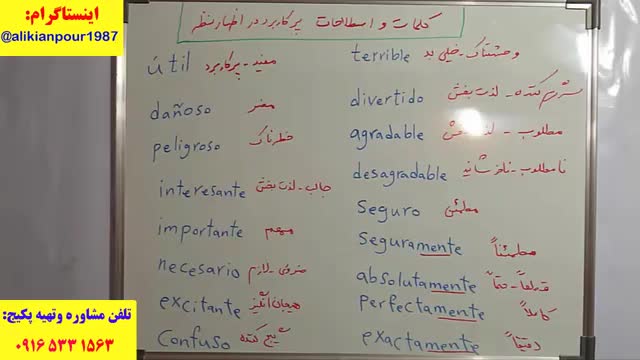 اینستاگرام:
@alikianpour1987
کلمات و اسطلاحات پرکاربرد در اظهار نظر
útil مفید - پرکاربرد
dañoso مضر
peligroso خطرناک
interesante جالب - لذت بخش
importante مهم
necesario ضروری - لازم
excitante هیجان انگیز
Confuso گیج کننده
terrible وحشتناک - خیلی بد
divertido سرگرم کننده - لذت بخش
agradable مطلوب - لذت بخش
desagradable نامطلوب - ناخوشایند
Seguro مطمئن
Seguramente مطمئناً
absolutamente قطعاً - حتماً
Perfectamente کاملاً
exactamente دقیقاً
تلفن مشاوره وتهیه پکیج:
۰۹۱۶ ۵۳۳ ۱۵۶۳